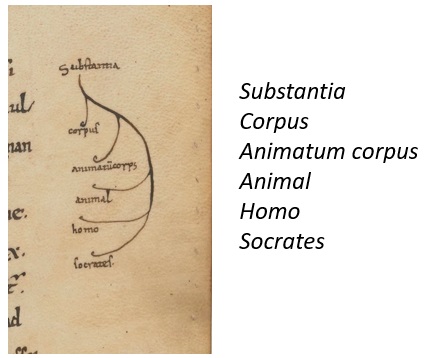 Substantia
corpus
animatū corps
animal
homo
socrates.
Substantia
Corpus
Animatum corpus
Animal
Homo
Socrates